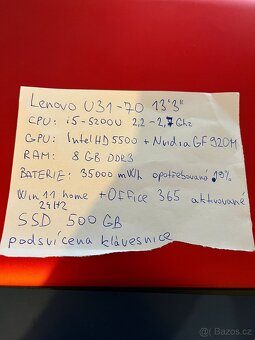 Lenovo U31-70 13'3"
CPU: i5-5200U 2,2-2,7Ghz
GPU: Intel HD5500 + Nvidia GF 920M
RAM: 8 GB DDR3
BATERIE: 35000 mWh opotřebované 19%
Win 11 home + Office 365 aktivované
24H2
SSD 500 GB
podsvícena klávesnice
Sbazoš.cz